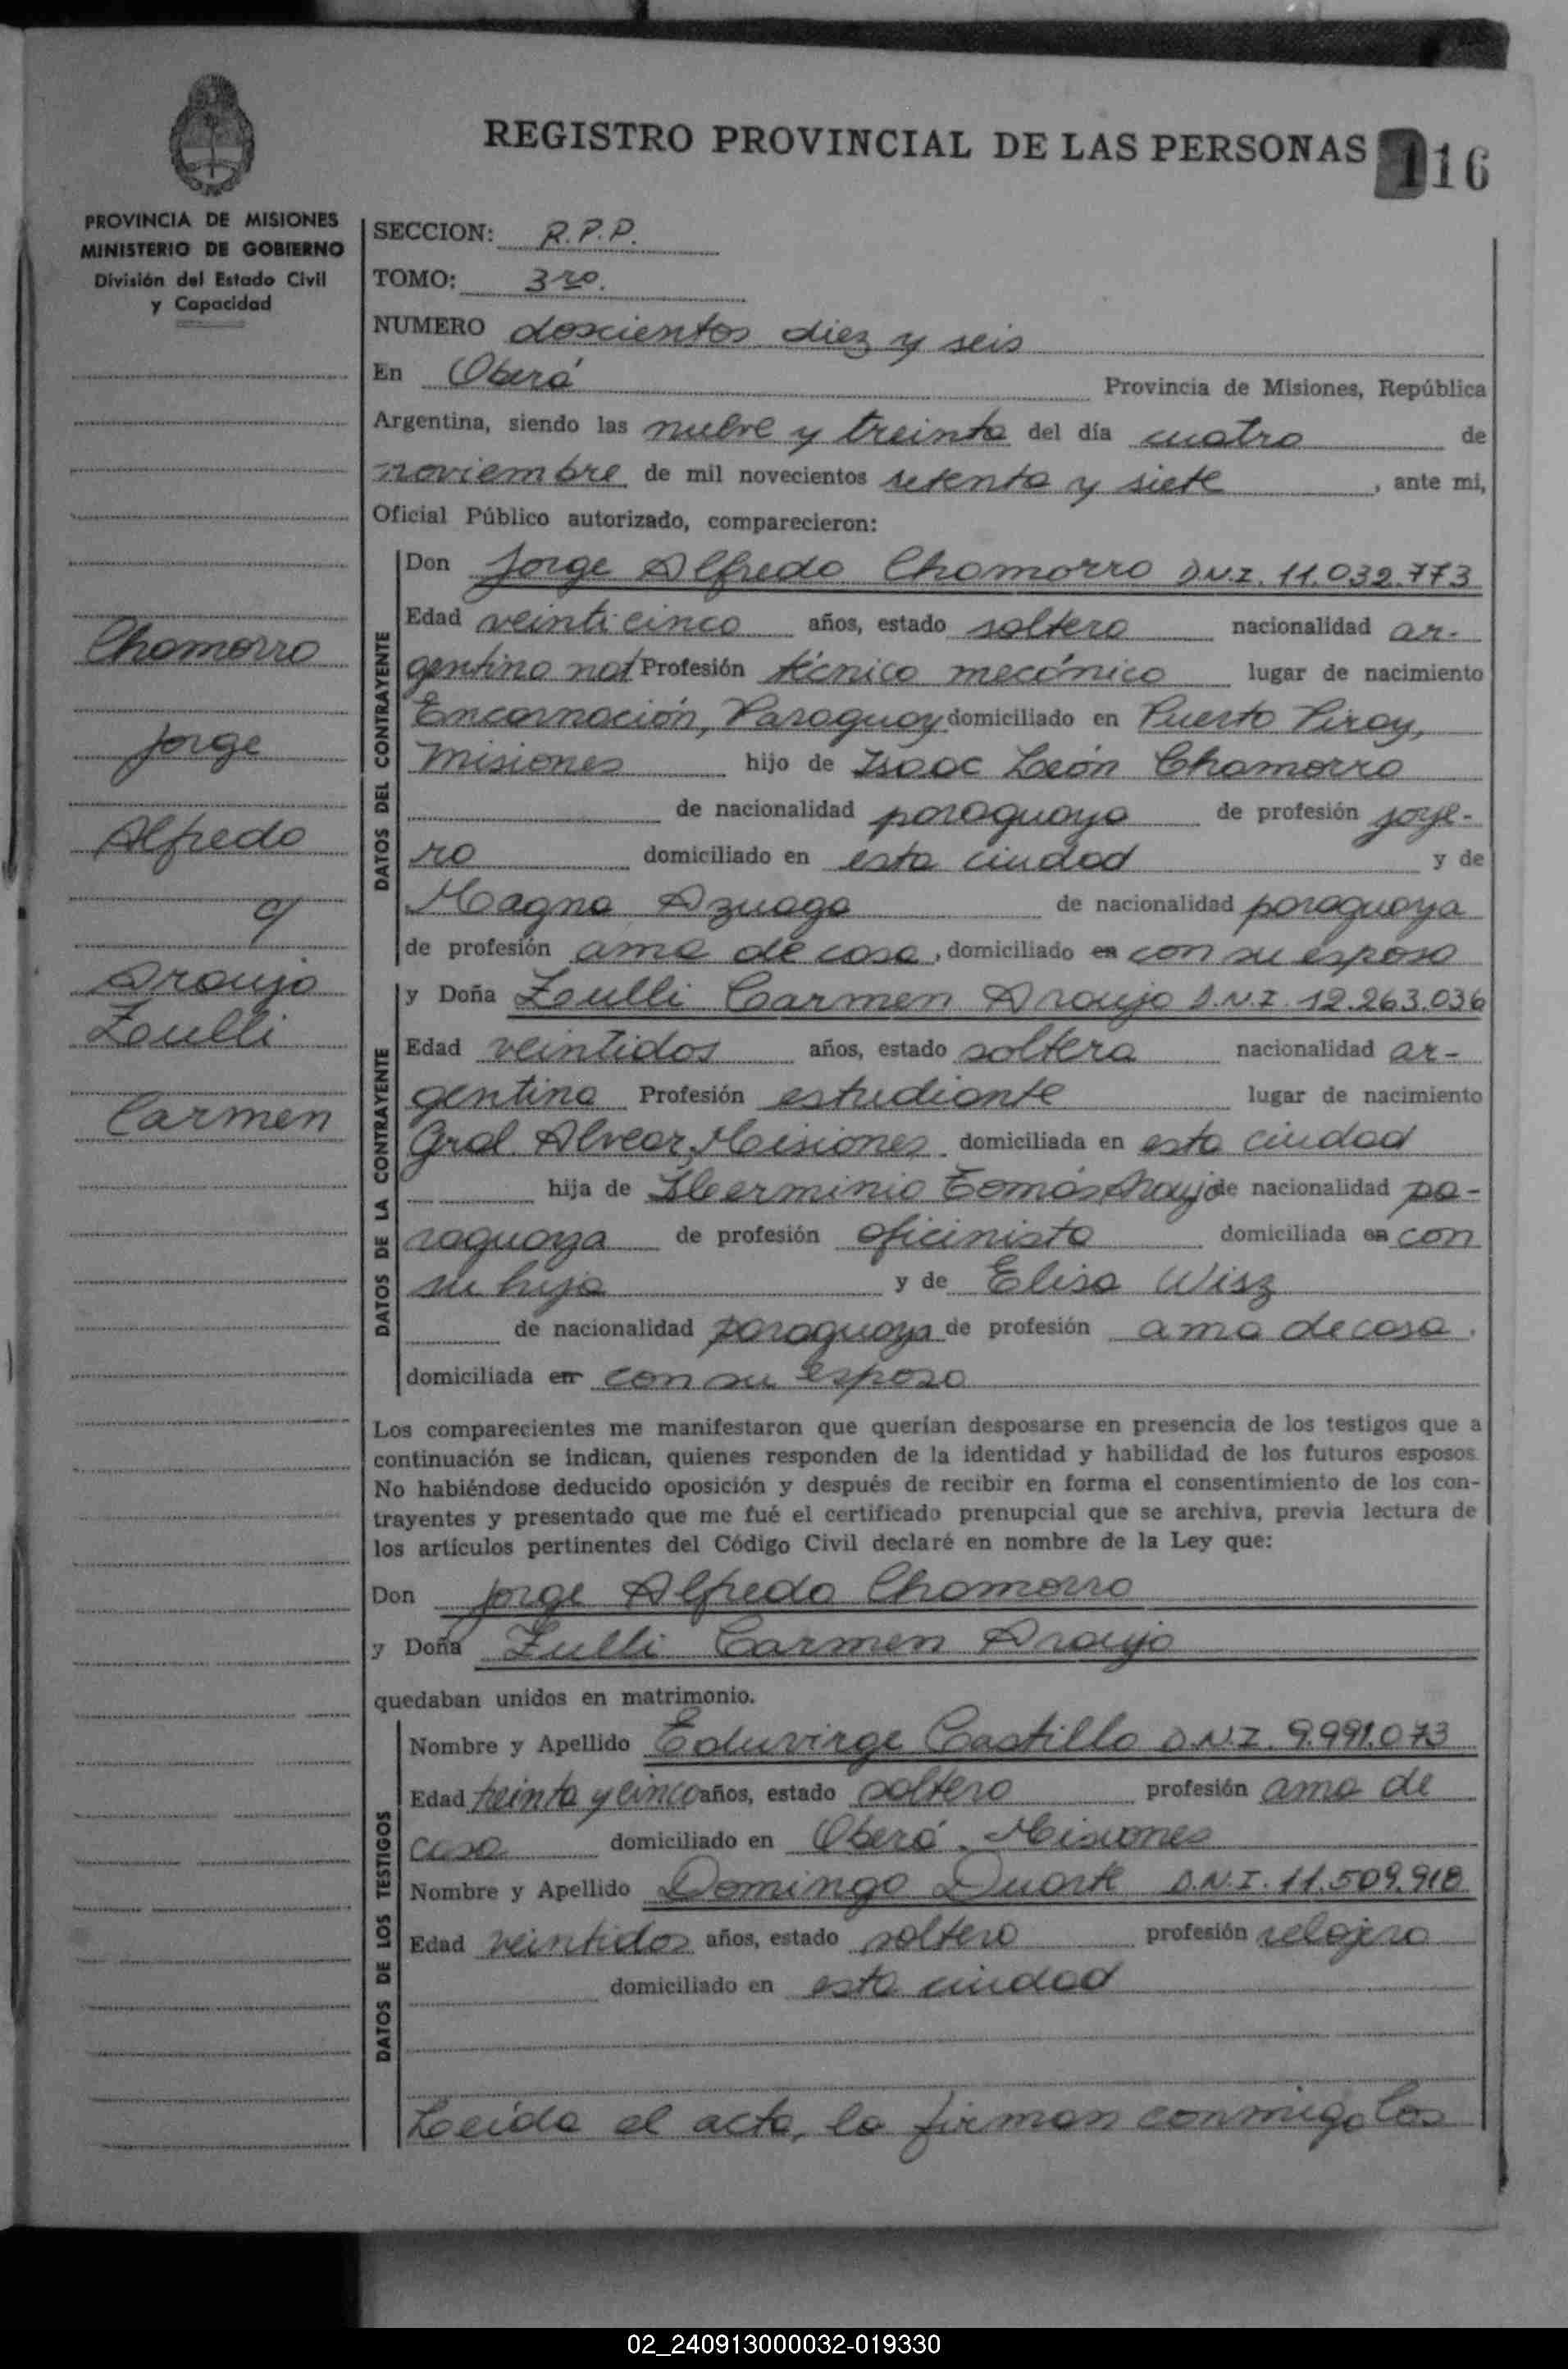 REGISTRO PROVINCIAL DE LAS PERSONAS 116
PROVINCIA DE MISIONES
MINISTERIO DE GOBIERNO
División del Estado Civil
y Capacidad
Chamorro
Jorge
Alfredo
c/
Araujo
Zulli
Carmen
SECCION: R.P.P.
TOMO: 3ro.
NUMERO doscientos diez y seis
En Oberá Provincia de Misiones, República
Argentina, siendo las nueve y treinta del día cuatro de
noviembre de mil novecientos setenta y siete, ante mi,
Oficial Público autorizado, comparecieron:
DATOS DEL CONTRAYENTE
Don Jorge Alfredo Chamorro D.N.I. 11.032.773
Edad veinticinco años, estado soltero nacionalidad ar-
gentino nat Profesión técnico mecánico lugar de nacimiento
Encarnación, Paraguay domiciliado en Puerto Piray,
Misiones hijo de Isaac León Chamorro
de nacionalidad paraguaya de profesión joye-
ro domiciliado en esta ciudad y de
Magna Azuaga de nacionalidad paraguaya
de profesión ama de casa, domiciliado en con su esposo
DATOS DE LA CONTRAYENTE
y Doña Zulli Carmen Araujo D.N.I. 12.263.036
Edad veintidos años, estado soltera nacionalidad ar-
gentina Profesión estudiante lugar de nacimiento
Gral. Alvear, Misiones domiciliada en esta ciudad
hija de Herminio Tomás Araujo de nacionalidad pa-
raguaya de profesión oficinista domiciliada en con
su hija y de Elisa Wisz
de nacionalidad paraguaya de profesión ama de casa.
domiciliada en con su esposo
Los comparecientes me manifestaron que querían desposarse en presencia de los testigos que a
continuación se indican, quienes responden de la identidad y habilidad de los futuros esposos.
No habiéndose deducido oposición y después de recibir en forma el consentimiento de los con-
trayentes y presentado que me fué el certificado prenupcial que se archiva, previa lectura de
los artículos pertinentes del Código Civil declaré en nombre de la Ley que:
Don Jorge Alfredo Chamorro
y Doña Zulli Carmen Araujo
quedaban unidos en matrimonio.
DATOS DE LOS TESTIGOS
Nombre y Apellido Eduvirge Castillo D.N.I. 9.991.073
Edad treinta y cinco años, estado soltero profesión ama de
casa domiciliado en Oberá, Misiones
Nombre y Apellido Domingo Duarte D.N.I. 11.509.918
Edad veintidos años, estado soltero profesión relojero
domiciliado en esta ciudad
Leída el acta, la firman conmigo los
02_240913000032-019330